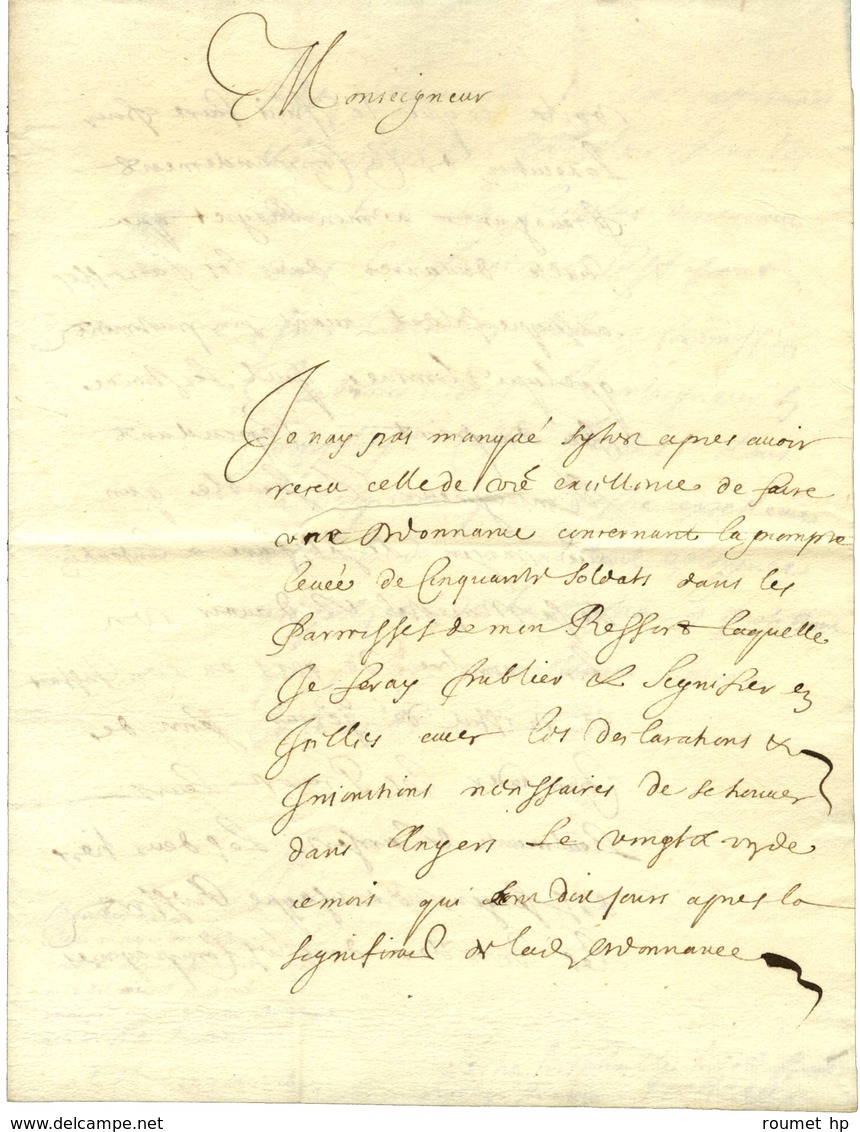 Monseigneur
Je nay pas manqué sytost apres avoir
receu celle de vre excellence de faire
une Ordonnance concernant la prompte
levée de Cinquante soldats dans les
Parroisses de mon Ressort laquelle
Je feray publier & segnifier en
Icelles avec les declarations &
Injonctions nécessaires de se trouver
dans Angers le vingt & un de
ce mois qui sont dix jours apres la
segnification de lad Ordonnance
www.delcampe.net
roumet hp